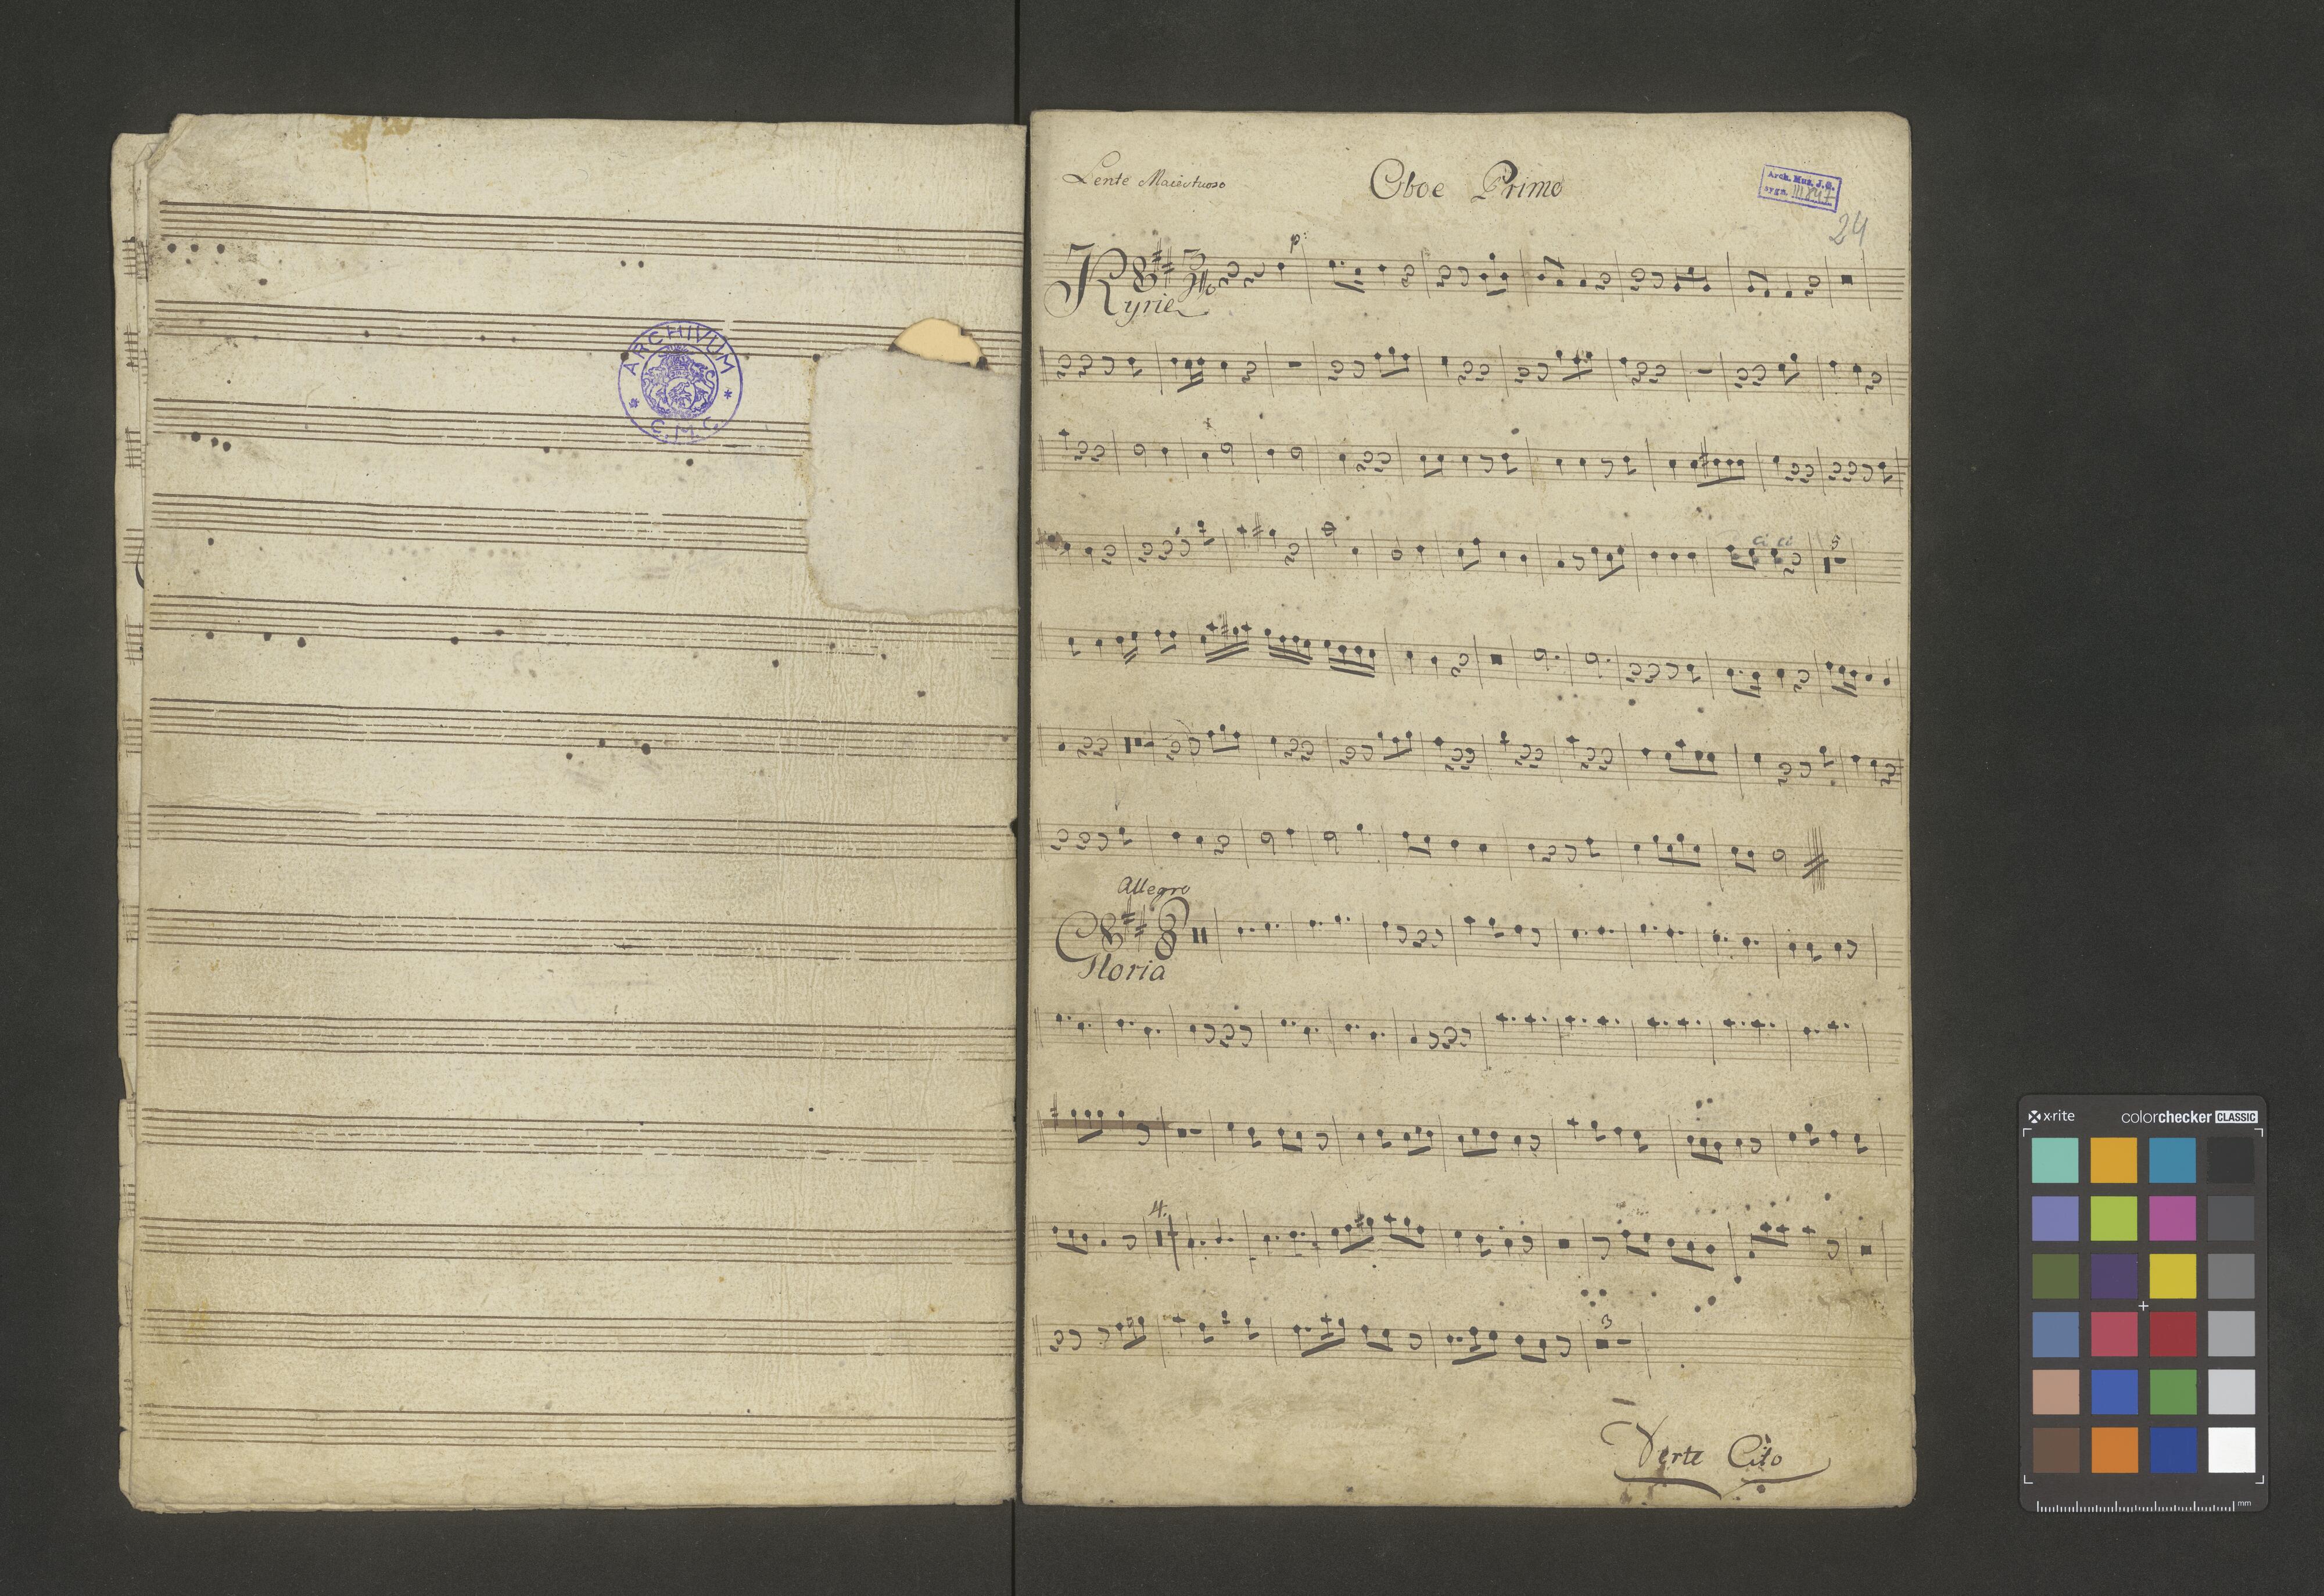 ARCHIVUM
* C.M.C *
Lente Maiestuoso
Oboe Primo
Arch. Muz. J.G.
sygn. III 847
24
p:
Kyrie
5
Allegro
Gloria
4.
3
Verte Cito
x-rite
colorchecker CLASSIC
mm